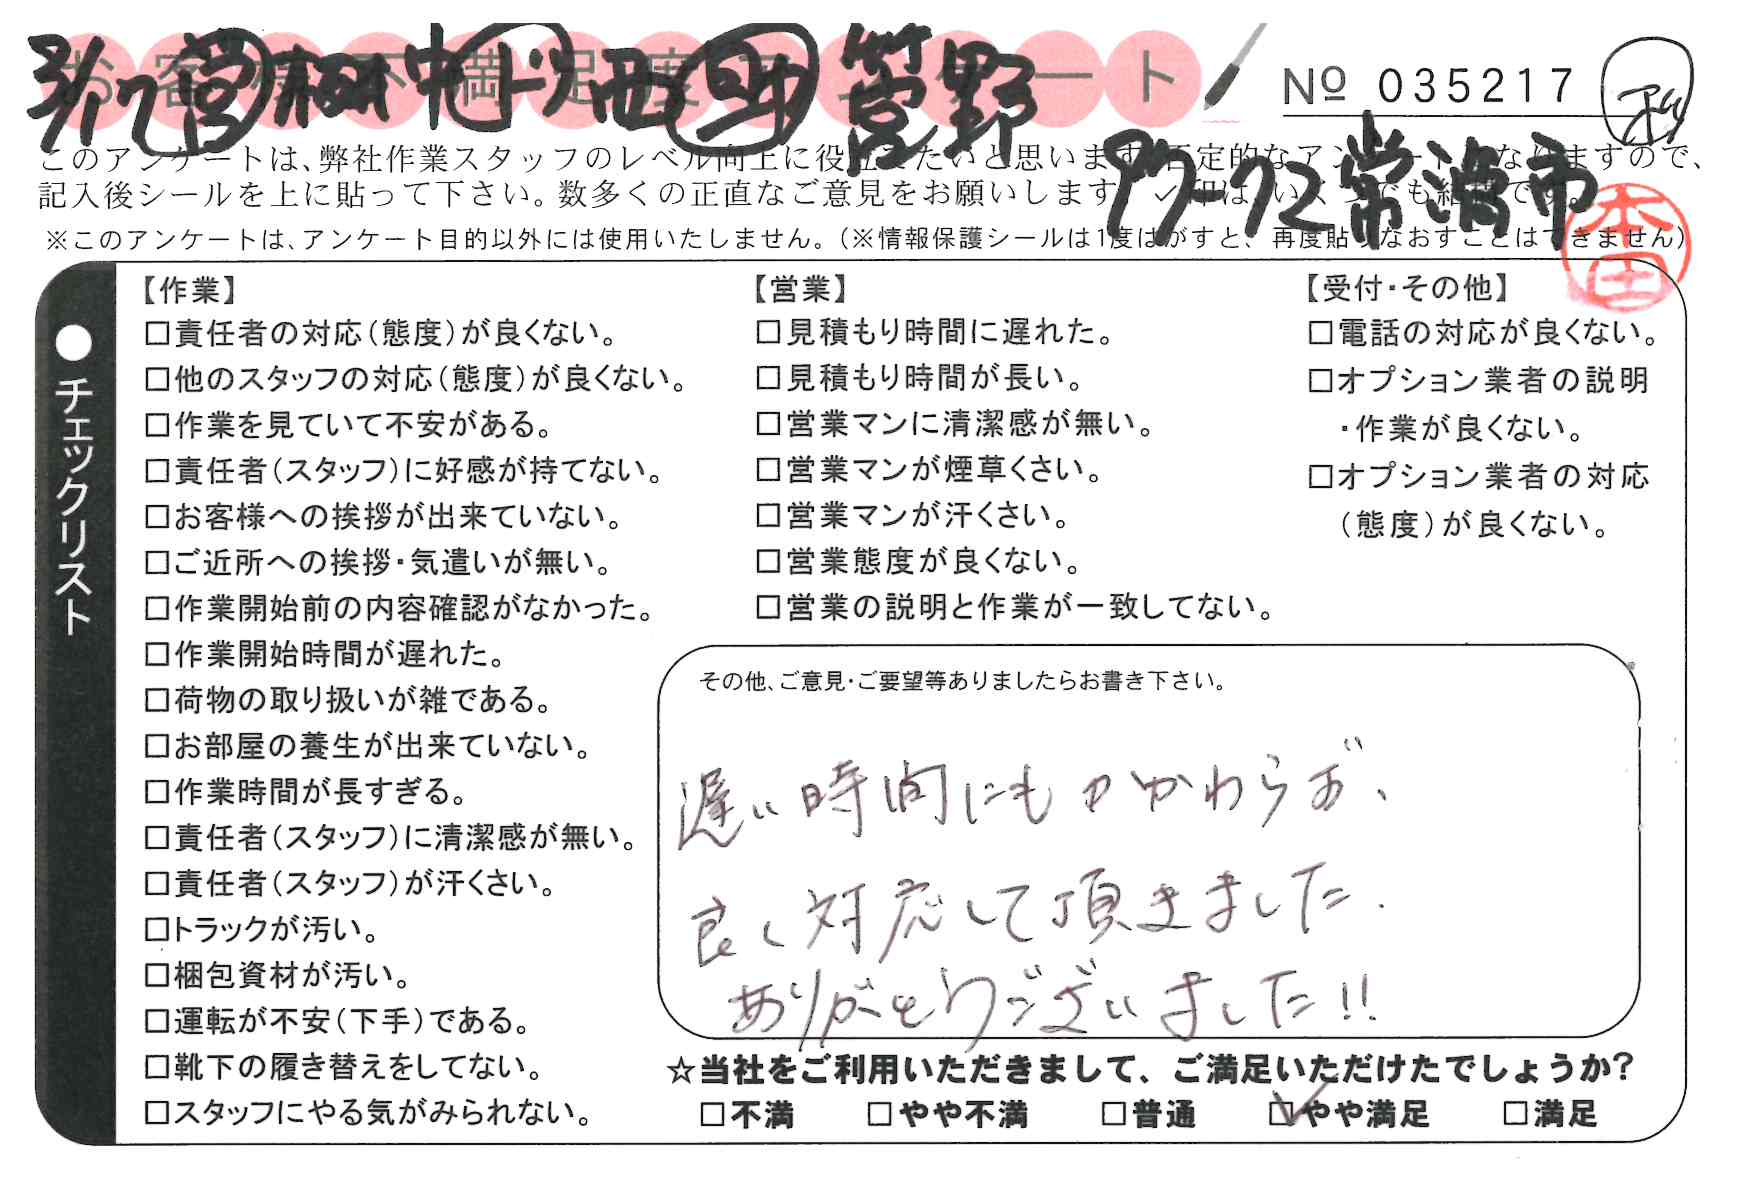 お客様不満足度アンケート
3/17 営 柳 中 ド 西 助 菅野
No 035217
9772 常滑市
このアンケートは、弊社作業スタッフのレベル向上に役立てたいと思います。否定的なアンケートとなりますので、
記入後シールを上に貼って下さい。数多くの正直なご意見をお願いします。✓印は、いくつでも結構です。
※このアンケートは、アンケート目的以外には使用いたしません。(※情報保護シールは1度はがすと、再度貼りなおすことはできません)
本田
●チェックリスト
【作業】
□責任者の対応(態度)が良くない。
□他のスタッフの対応(態度)が良くない。
□作業を見ていて不安がある。
□責任者(スタッフ)に好感が持てない。
□お客様への挨拶が出来ていない。
□ご近所への挨拶・気遣いが無い。
□作業開始前の内容確認がなかった。
□作業開始時間が遅れた。
□荷物の取り扱いが雑である。
□お部屋の養生が出来ていない。
□作業時間が長すぎる。
□責任者(スタッフ)に清潔感が無い。
□責任者(スタッフ)が汗くさい。
□トラックが汚い。
□梱包資材が汚い。
□運転が不安(下手)である。
□靴下の履き替えをしてない。
□スタッフにやる気がみられない。
【営業】
□見積もり時間に遅れた。
□見積もり時間が長い。
□営業マンに清潔感が無い。
□営業マンが煙草くさい。
□営業マンが汗くさい。
□営業態度が良くない。
□営業の説明と作業が一致してない。
【受付・その他】
□電話の対応が良くない。
□オプション業者の説明
・作業が良くない。
□オプション業者の対応
(態度)が良くない。
その他、ご意見・ご要望等ありましたらお書き下さい。
遅い時間にもかかわらず、
良く対応して頂きました.
ありがとうございました!!
☆当社をご利用いただきまして、ご満足いただけたでしょうか?
□不満 □やや不満 □普通 ☑やや満足 □満足